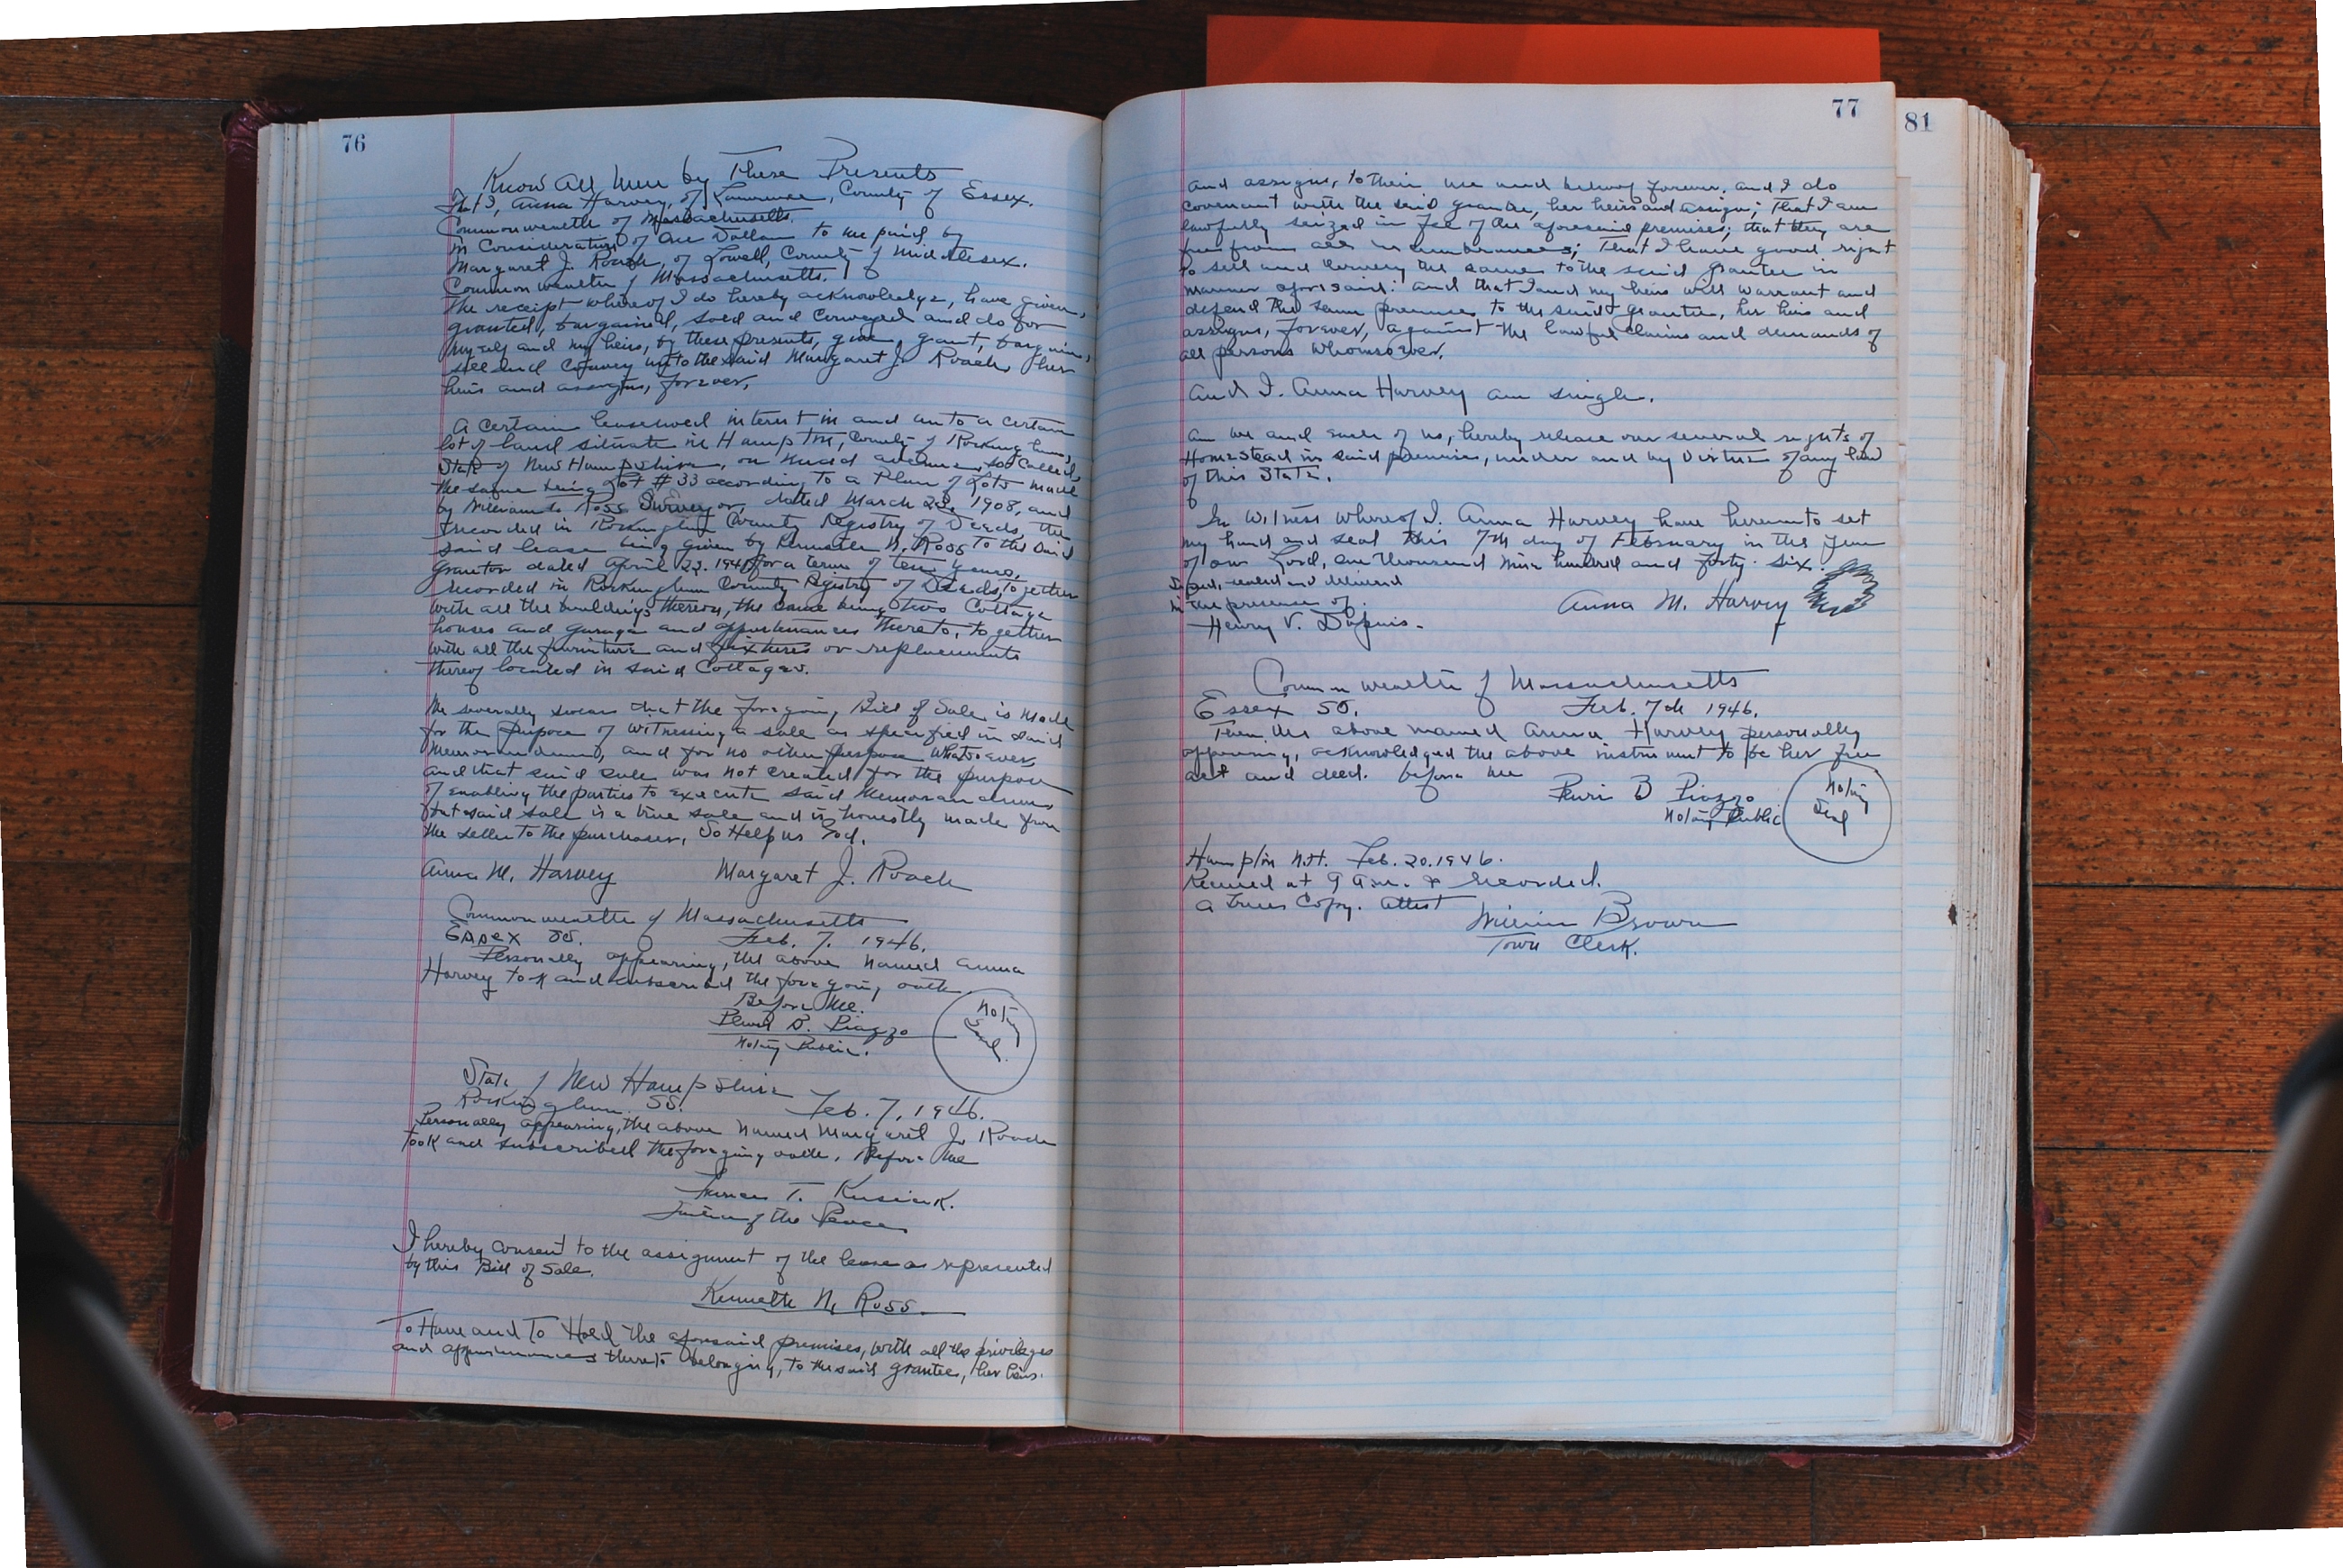 76
Know All Men by These Presents
That I, Anna Harvey, of Lawrence, County of Essex.
Commonwealth of Massachusetts.
in Consideration of One Dollar to me paid by
Margaret J. Roach, of Lowell, County of Middlesex.
Commonwealth of Massachusetts.
the receipt whereof I do hereby acknowledge, have given,
granted, bargained, sold and conveyed and do for
myself and my heirs, by these presents, give, grant, bargain,
sell and convey unto the said Margaret J. Roach, her
heirs and assigns, forever,
A certain leasehold interest in and unto a certain
lot of land situate in Hampton, County of Rockingham,
State of New Hampshire, on avenue, so called,
the same being Lot # 33 according to a Plan of Lots made
by William Ross Surveyor, dated March 23, 1908, and
recorded in Rockingham County Registry of Deeds, the
said lease being given by Kenneth N. Ross to the said
grantor dated April 23. for a term of ten years,
recorded in Rockingham County Registry of Deeds, together
with all the buildings thereon, the same being two Cottage
houses and garage and appurtenances thereto, together
with all the furniture and fixtures or replacements
thereof located in said Cottages.
We severally swear that the foregoing Bill of Sale is made
for the purpose of witnessing a sale as specified in said
Memorandum, and for no other purpose whatsoever,
and that said sale was not created for the purpose
of enabling the parties to execute said Memorandum,
but said sale is a true sale and is honestly made from
the seller to the purchaser, So Help us God.
Anna M. Harvey Margaret J. Roach
Commonwealth of Massachusetts
Essex SS. Feb. 7. 1946.
Personally appearing, the above named Anna
Harvey took and subscribed the foregoing oath.
Before Me.
D. Piazzo
Notary Public.
Notary
Seal
State of New Hampshire
Rockingham. SS. Feb. 7, 1946.
Personally appearing, the above named Margaret J. Roach
took and subscribed the foregoing oath, Before Me
T. Kusiak.
Justice of the Peace
I hereby consent to the assignment of the lease as represented
by this Bill of Sale.
Kenneth N. Ross.
To Have and To Hold the aforesaid premises, with all the privileges
and appurtenances thereto belonging, to the said grantee, her heirs.
77
and assigns, to their use and behoof forever. and I do
covenant with the said grantee, her heirs and assigns; that I am
lawfully seized in fee of the aforesaid premises; that they are
free from all incumbrances; that I have good right
to sell and convey the same to the said grantee in
manner aforesaid: and that I and my heirs will warrant and
defend the same premises to the said grantee, her heirs and
assigns, forever, against the lawful claims and demands of
all persons whomsoever.
And I. Anna Harvey am single.
an we and each of us, hereby release our several rights of
Homestead in said premises, under and by virtue of any law
of this State.
In Witness whereof I. Anna Harvey have hereunto set
my hand and seal this 7th day of February in the year
of our Lord, one thousand nine hundred and forty-six.
Signed, sealed and delivered
in the presence of.
Henry V. Dupuis. Anna M. Harvey
Commonwealth of Massachusetts
Essex SS. Feb. 7th 1946.
Then the above named Anna Harvey personally
appearing, acknowledged the above instrument to be her free
act and deed. before me
D Piazzo
Notary Public
Notary
Seal
Hampton N.H. Feb. 20. 1946.
Received at 9 A.m. & recorded.
A True Copy. Attest
William Brown
Town Clerk.
81